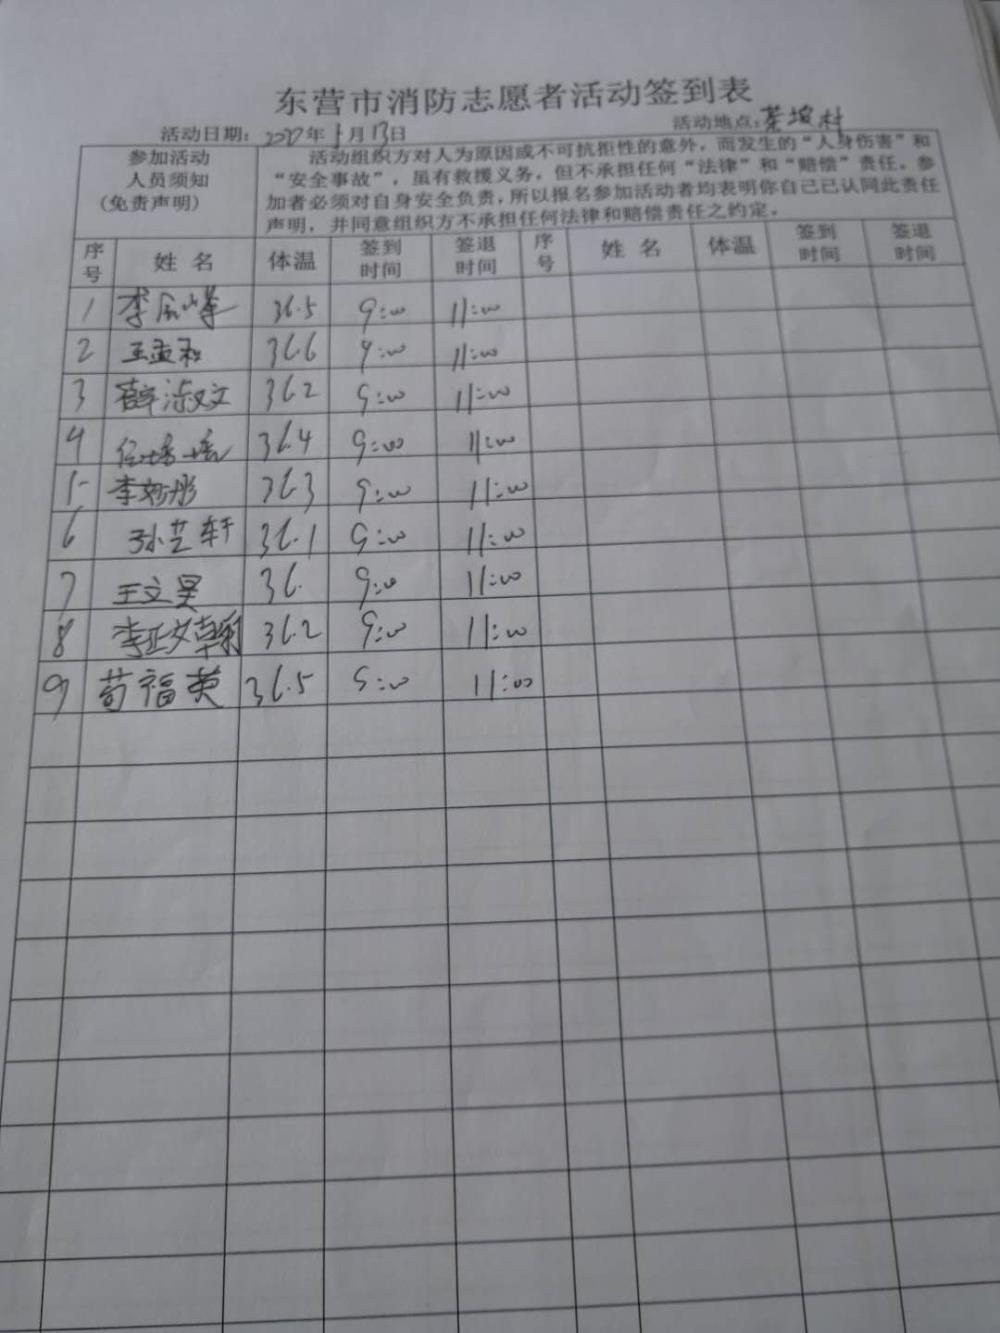 东营市消防志愿者活动签到表
活动日期: 2022年1月13日 活动地点:
参加活动
人员须知
(免责声明)
活动组织方对人为原因或不可抗拒性的意外，而发生的“人身伤害”和
“安全事故”，虽有救援义务，但不承担任何“法律”和“赔偿”责任。参
加者必须对自身安全负责，所以报名参加活动者均表明你自己已认同此责任
声明，并同意组织方不承担任何法律和赔偿责任之约定。
序号 姓名 体温 签到时间 签退时间 序号 姓名 体温 签到时间 签退时间
1 李 36.5 9:00 11:00
2 王孟和 36.6 9:00 11:00
3 薛淑文 36.2 9:00 11:00
4 任培培 36.4 9:00 11:00
5 李 彤 36.3 9:00 11:00
6 孙芝轩 36.1 9:00 11:00
7 王文昊 36. 9:00 11:00
8 李 36.2 9:00 11:00
9 苟福英 36.5 9:00 11:00